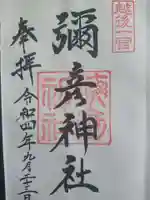 越後一宮
奉拝
彌彦神社
令和四年九月二十三日